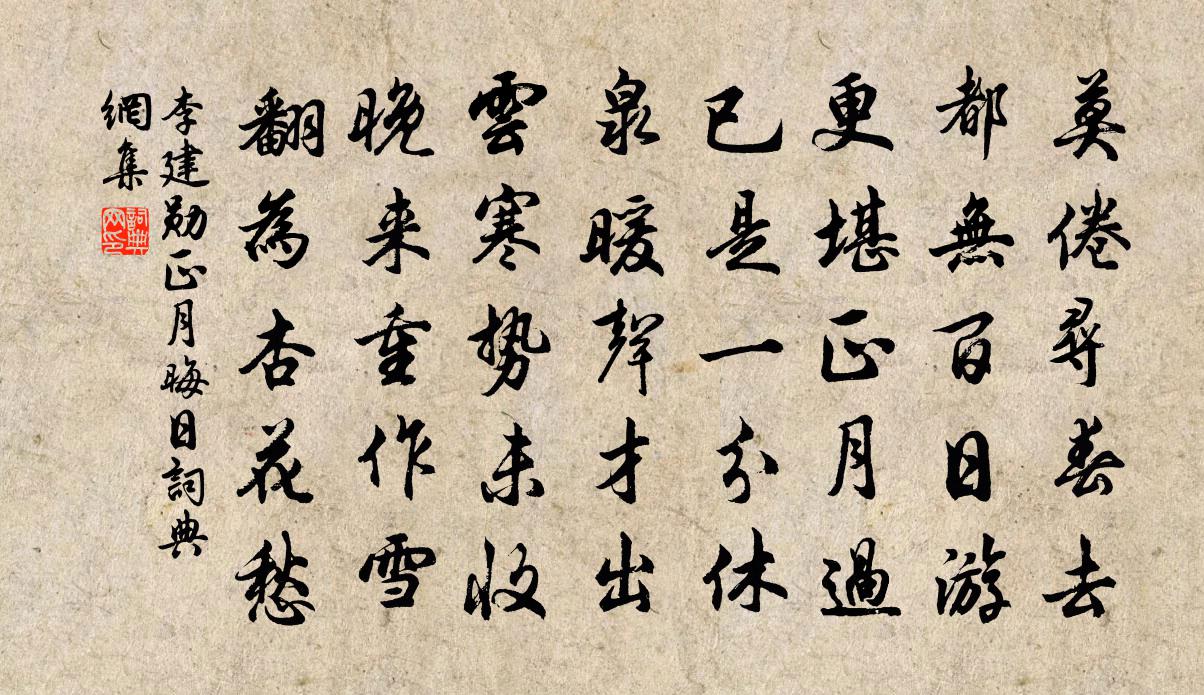 莫倦尋春去
都無百日游
更堪正月過
已是一分休
泉暖聲才出
雲寒势未收
晚来重作雪
翻為杏花愁
李建勋正月晦日詞典
網集
詞典
网印